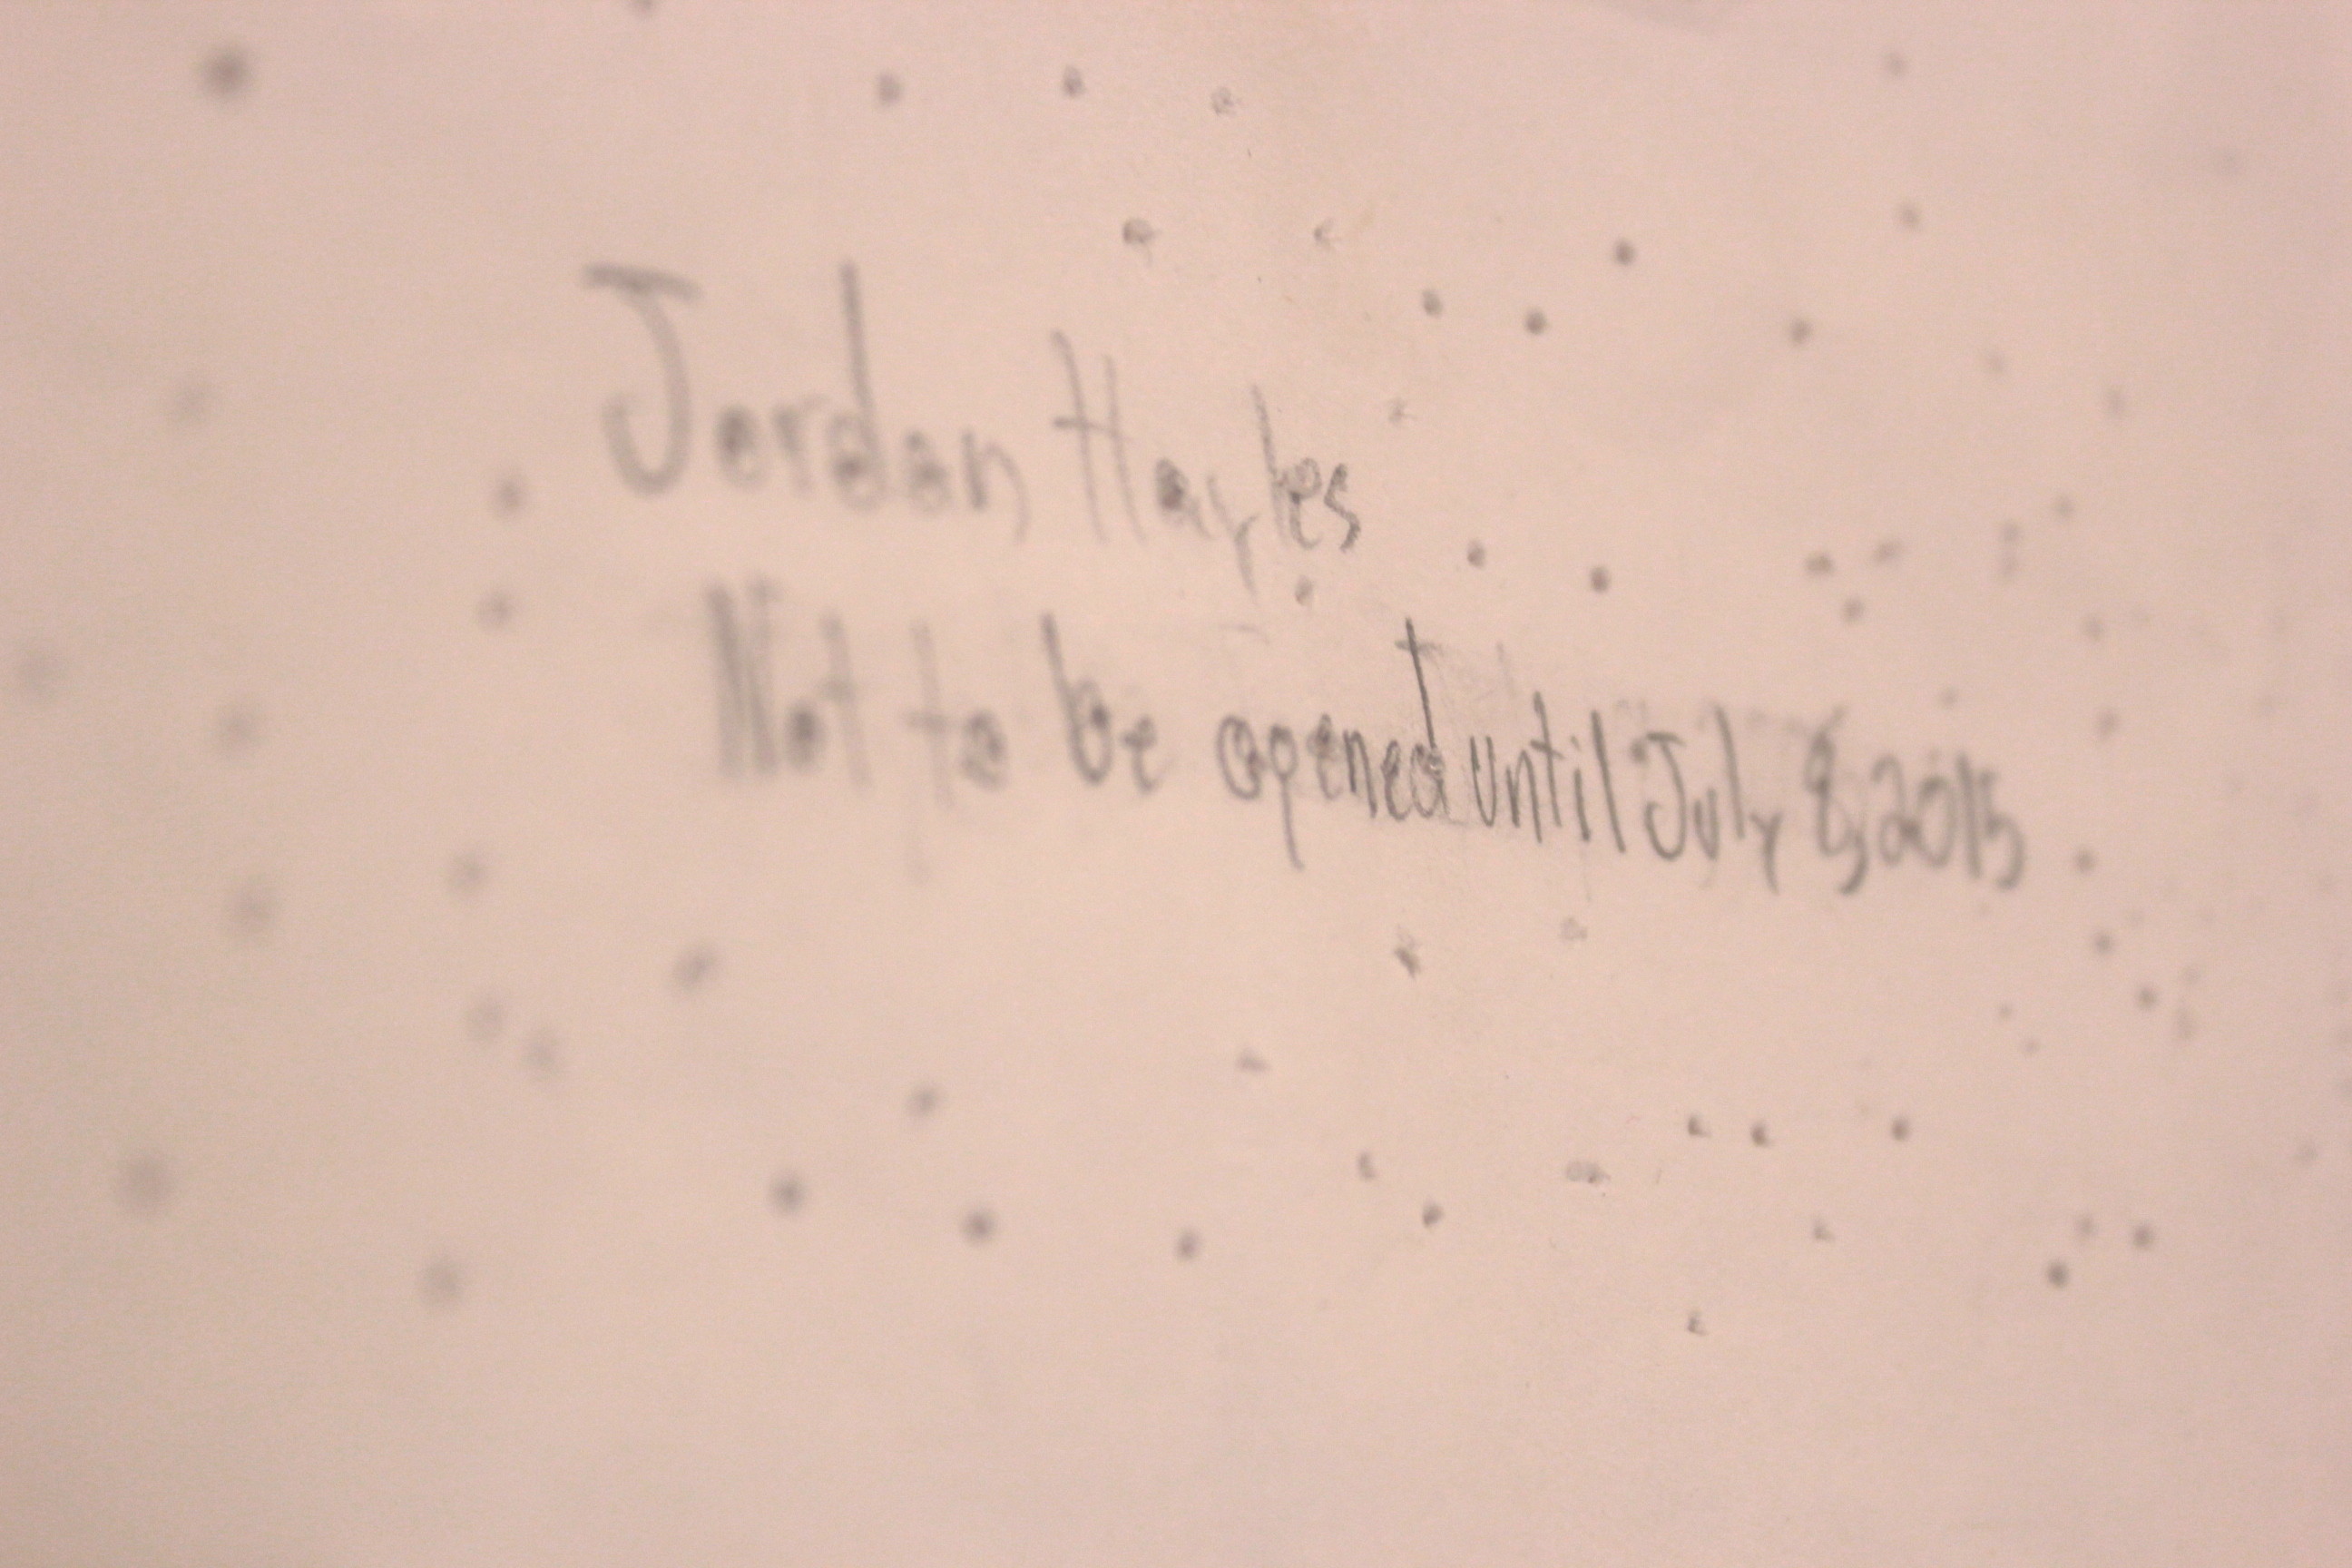 Jordan Hayles
Not to be opened until July 8, 2015